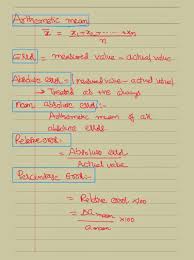 Arthematic mean
x̄ = x₁+x₂+ ...... +xn / n
Error = measured value - actual value
Absolute error = |measured value - actual value|
→ Treated as +ve always
mean absolute error:-
Arthematic mean of all
absolute errors
Relative error:-
= Absolute error / Actual value
Percentage Error:-
= Relative error x100
= Δa mean / a mean x100